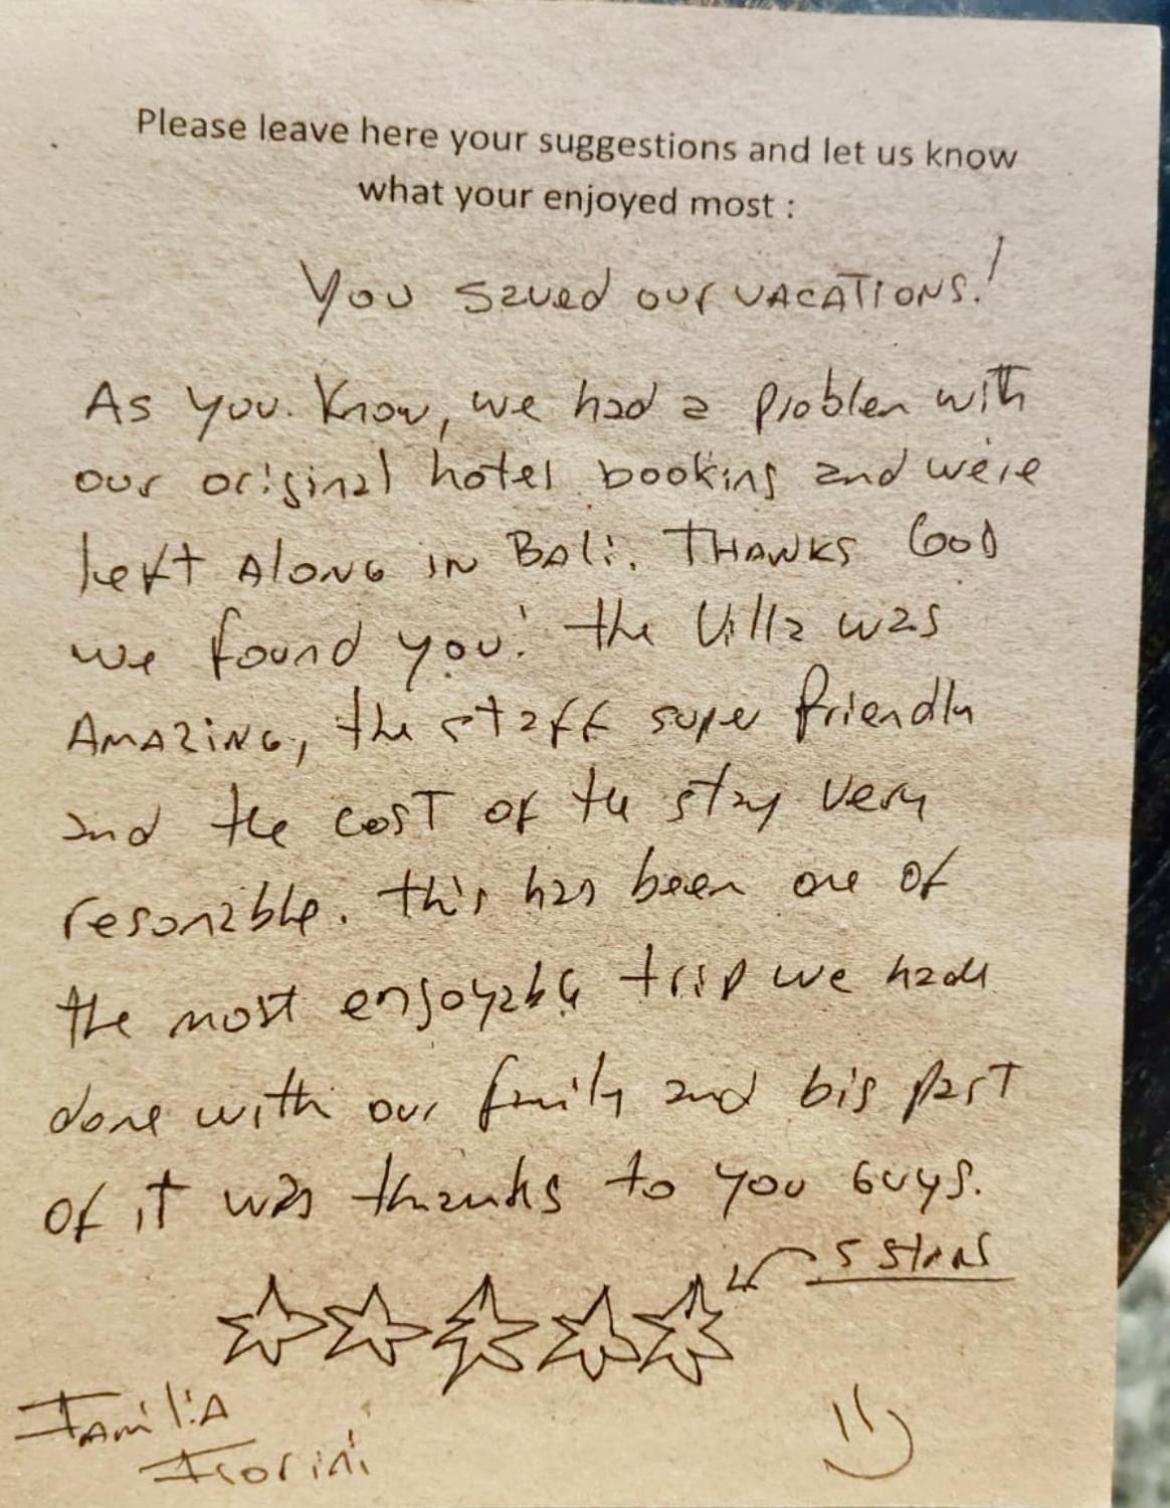 Please leave here your suggestions and let us know
what your enjoyed most :
You saved our VACATIONS!
As you know, we had a problem with
our original hotel booking and were
left ALONG IN BALi. THANKS GOD
we found you! the Villa was
AMAZING, the staff super friendly
and the cost of the stay very
resonable. this has been one of
the most enjoyable trip we hade
done with our family and big part
of it was thanks to you guys.
5 stars
FamiliA
Fiorini